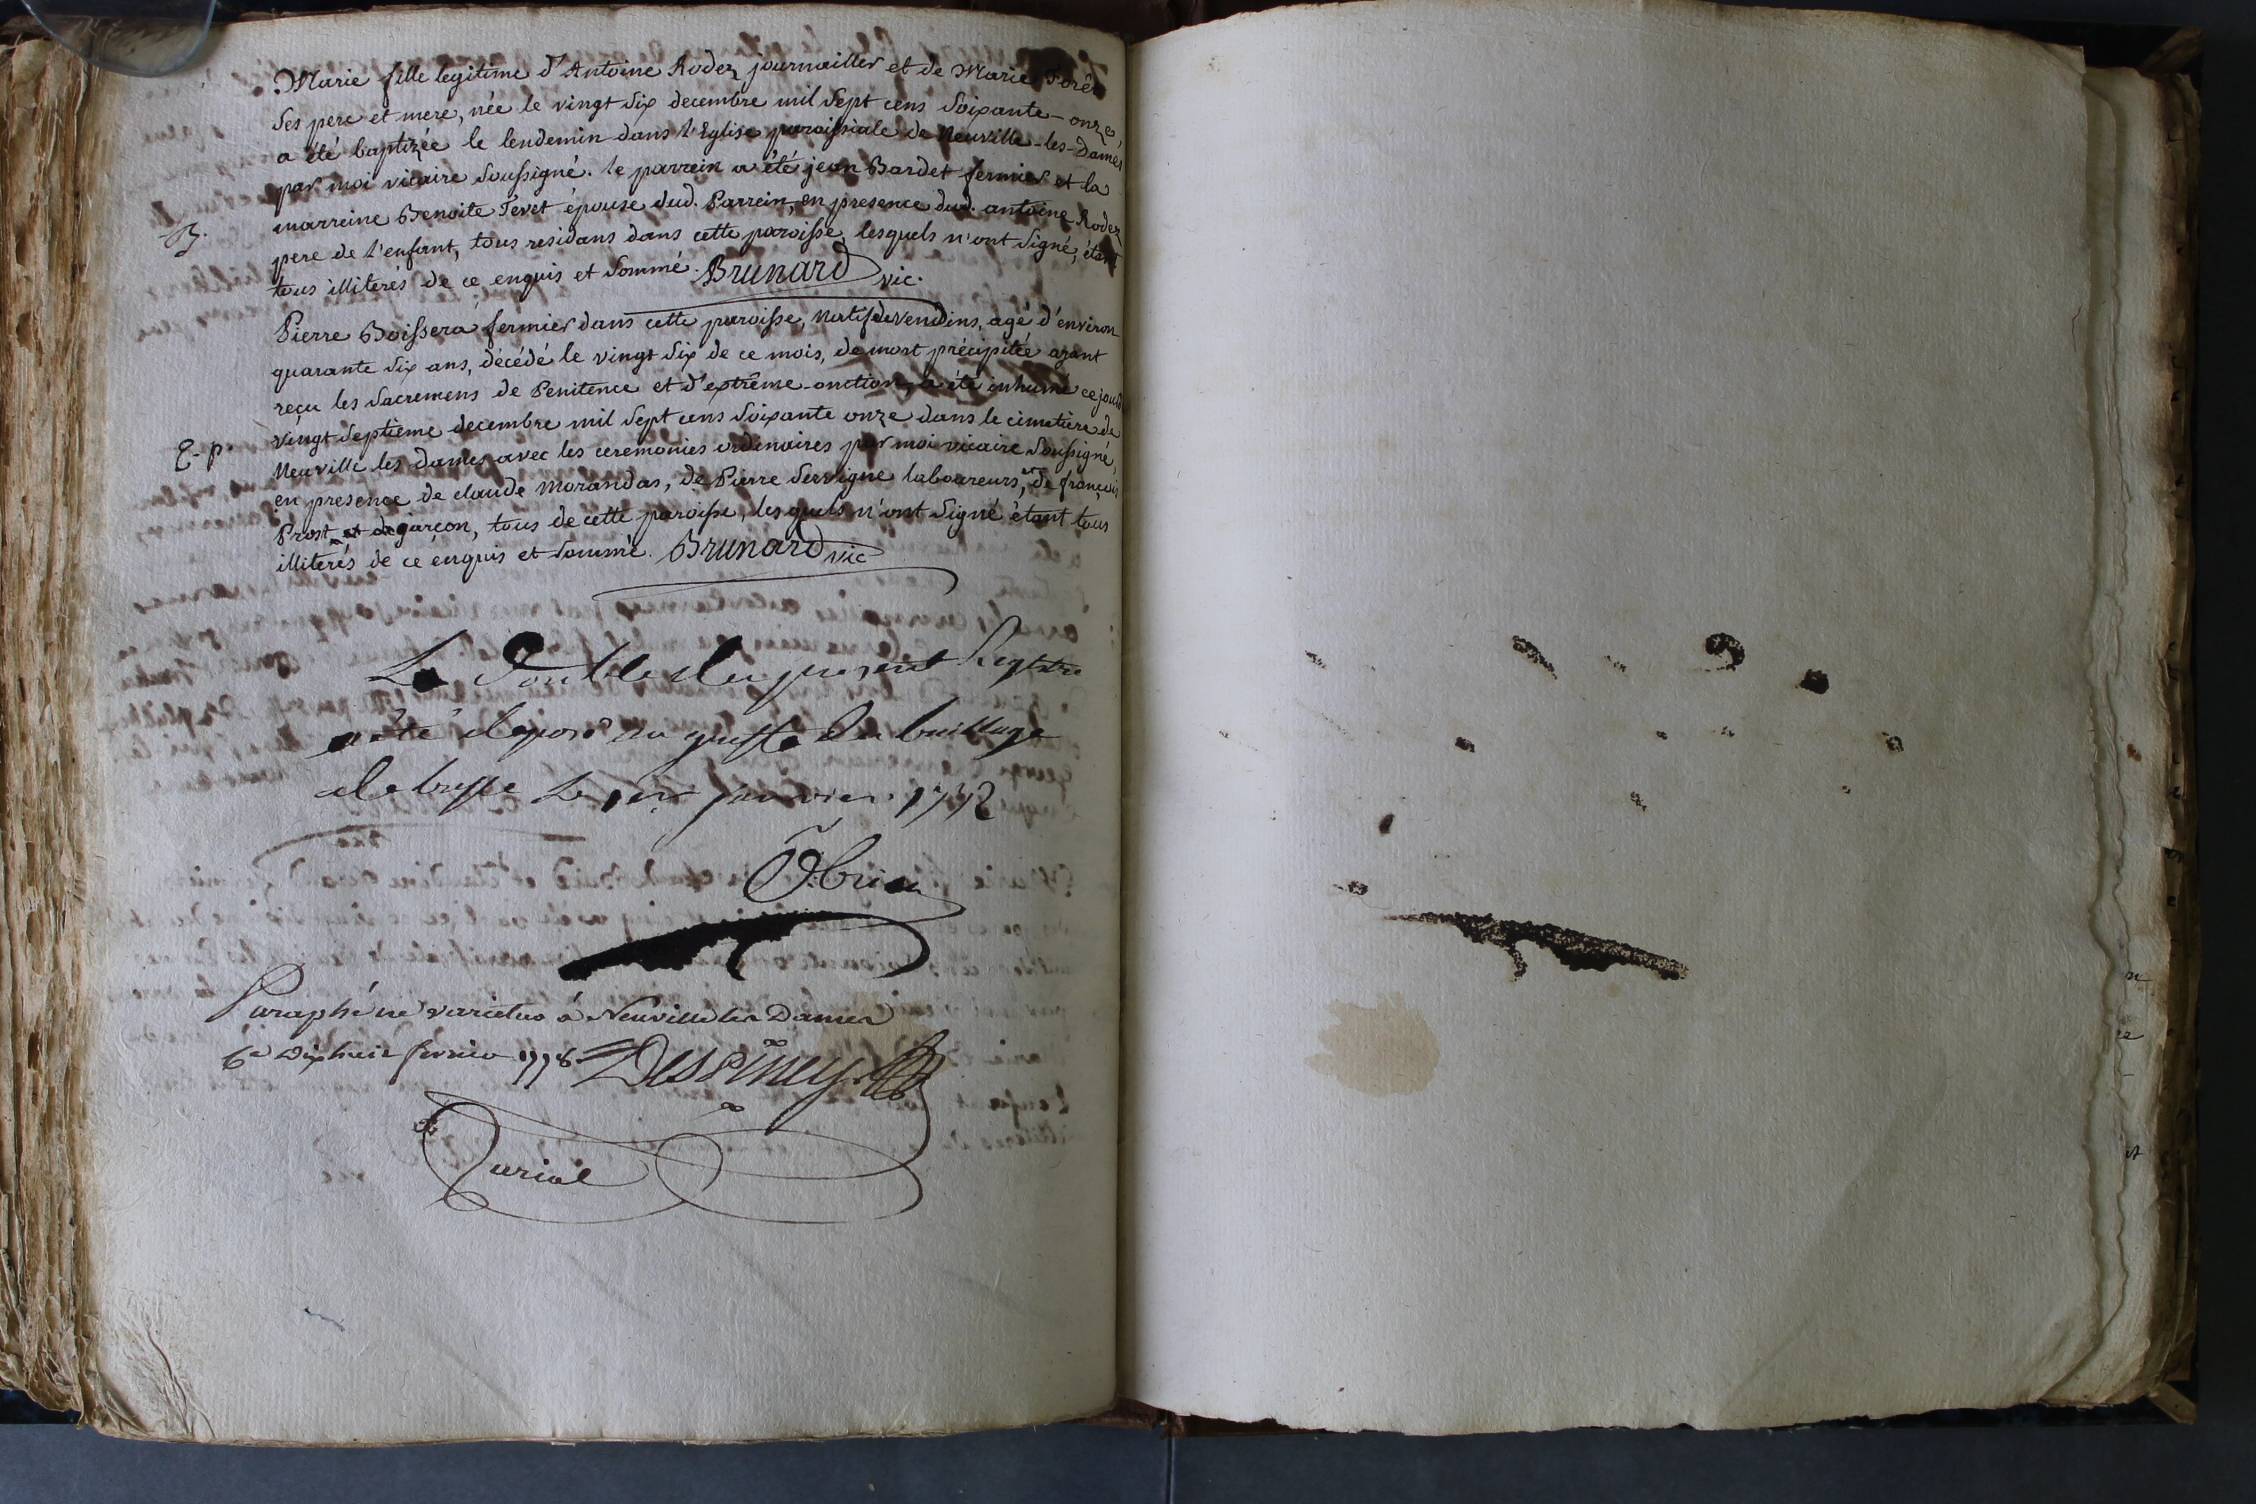 Marie fille legitime d'Antoine Rodez journailler et de Marie Forêt
ses pere et mere, née le vingt six decembre mil sept cens soixante-onze
a été baptizée le lendemin dans l'Eglise paroissiale de Neuville-les-Dames
par moi vicaire soussigné. le parrein a été jean Bardet fermier et la
marreine Benoite Tevet épouse dud. Parrein, en presence dud. antoine Rodez
B.
pere de l'enfant, tous residans dans cette paroisse, lesquels n'ont signé, étant
tous illiterés de ce enquis et sommé. Brunard vic.
Pierre Boissera fermier dans cette paroisse, natif de vendins, agé d'environ
quarante six ans, décédé le vingt six de ce mois, de mort précipitée ayant
reçu les sacremens de Penitence et d'extrême-onction, a été inhumé ce jourd
vingt septieme decembre mil sept cens soixante onze dans le cimetière de
E-p.
Neuville les dames avec les ceremonies ordinaires par moi vicaire soussigné,
en presence de claude Morandas, de Pierre Servigne laboureurs, et de françois
Prost garçon, tous de cette paroisse, lesquels n'ont signé étant tous
illiterés de ce enquis et sommé. Brunard vic
Le Double du present Registre
a été deposé au greffe du bailliage
de bresse le 1er janvier 1772
Paraphé ne varietur à Neuville les Dames
ce dix huit fevrier 1778 Desviney
Curial